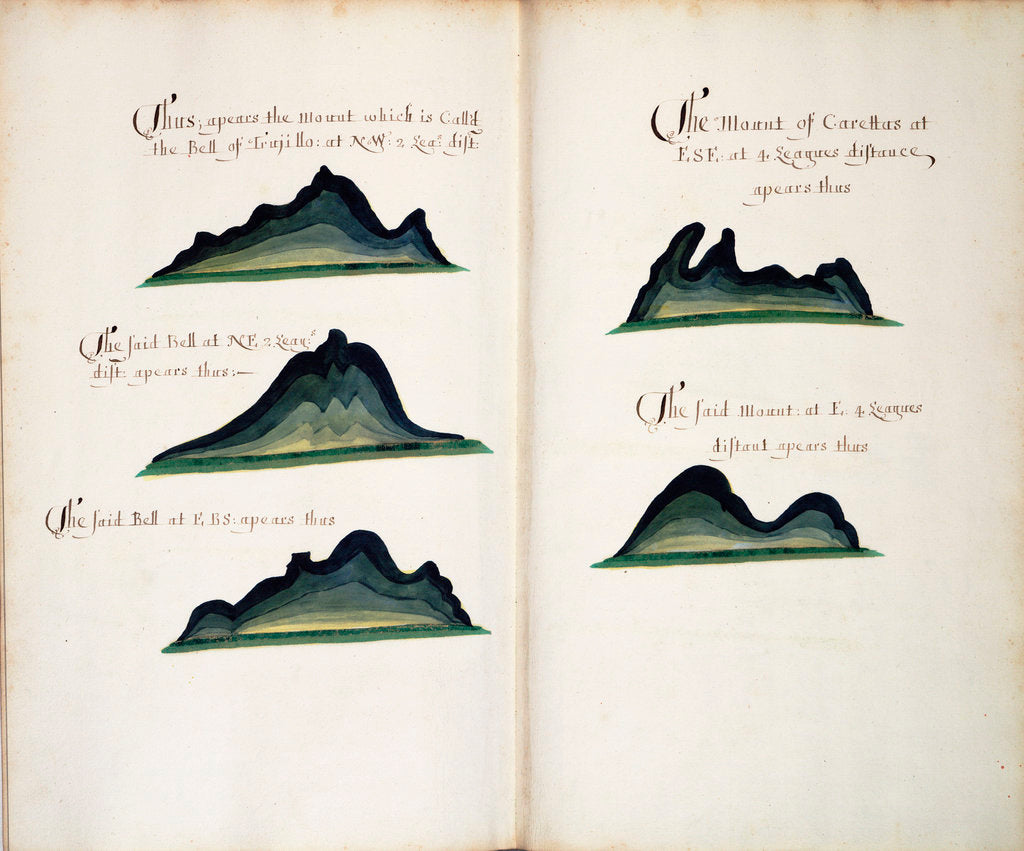 Thus, apears the Mount which is Call'd
the Bell of Trujillo: at N:W: 2 Lea.s dist:
The said Bell at N.E. 2 Leag.s
dist: apears thus:—
The said Bell at E B S: apears thus
The Mount of Carettas at
E.S.E. at 4 Leagues distance,
apears thus
The said Mount: at E: 4 Leagues
distant apears thus